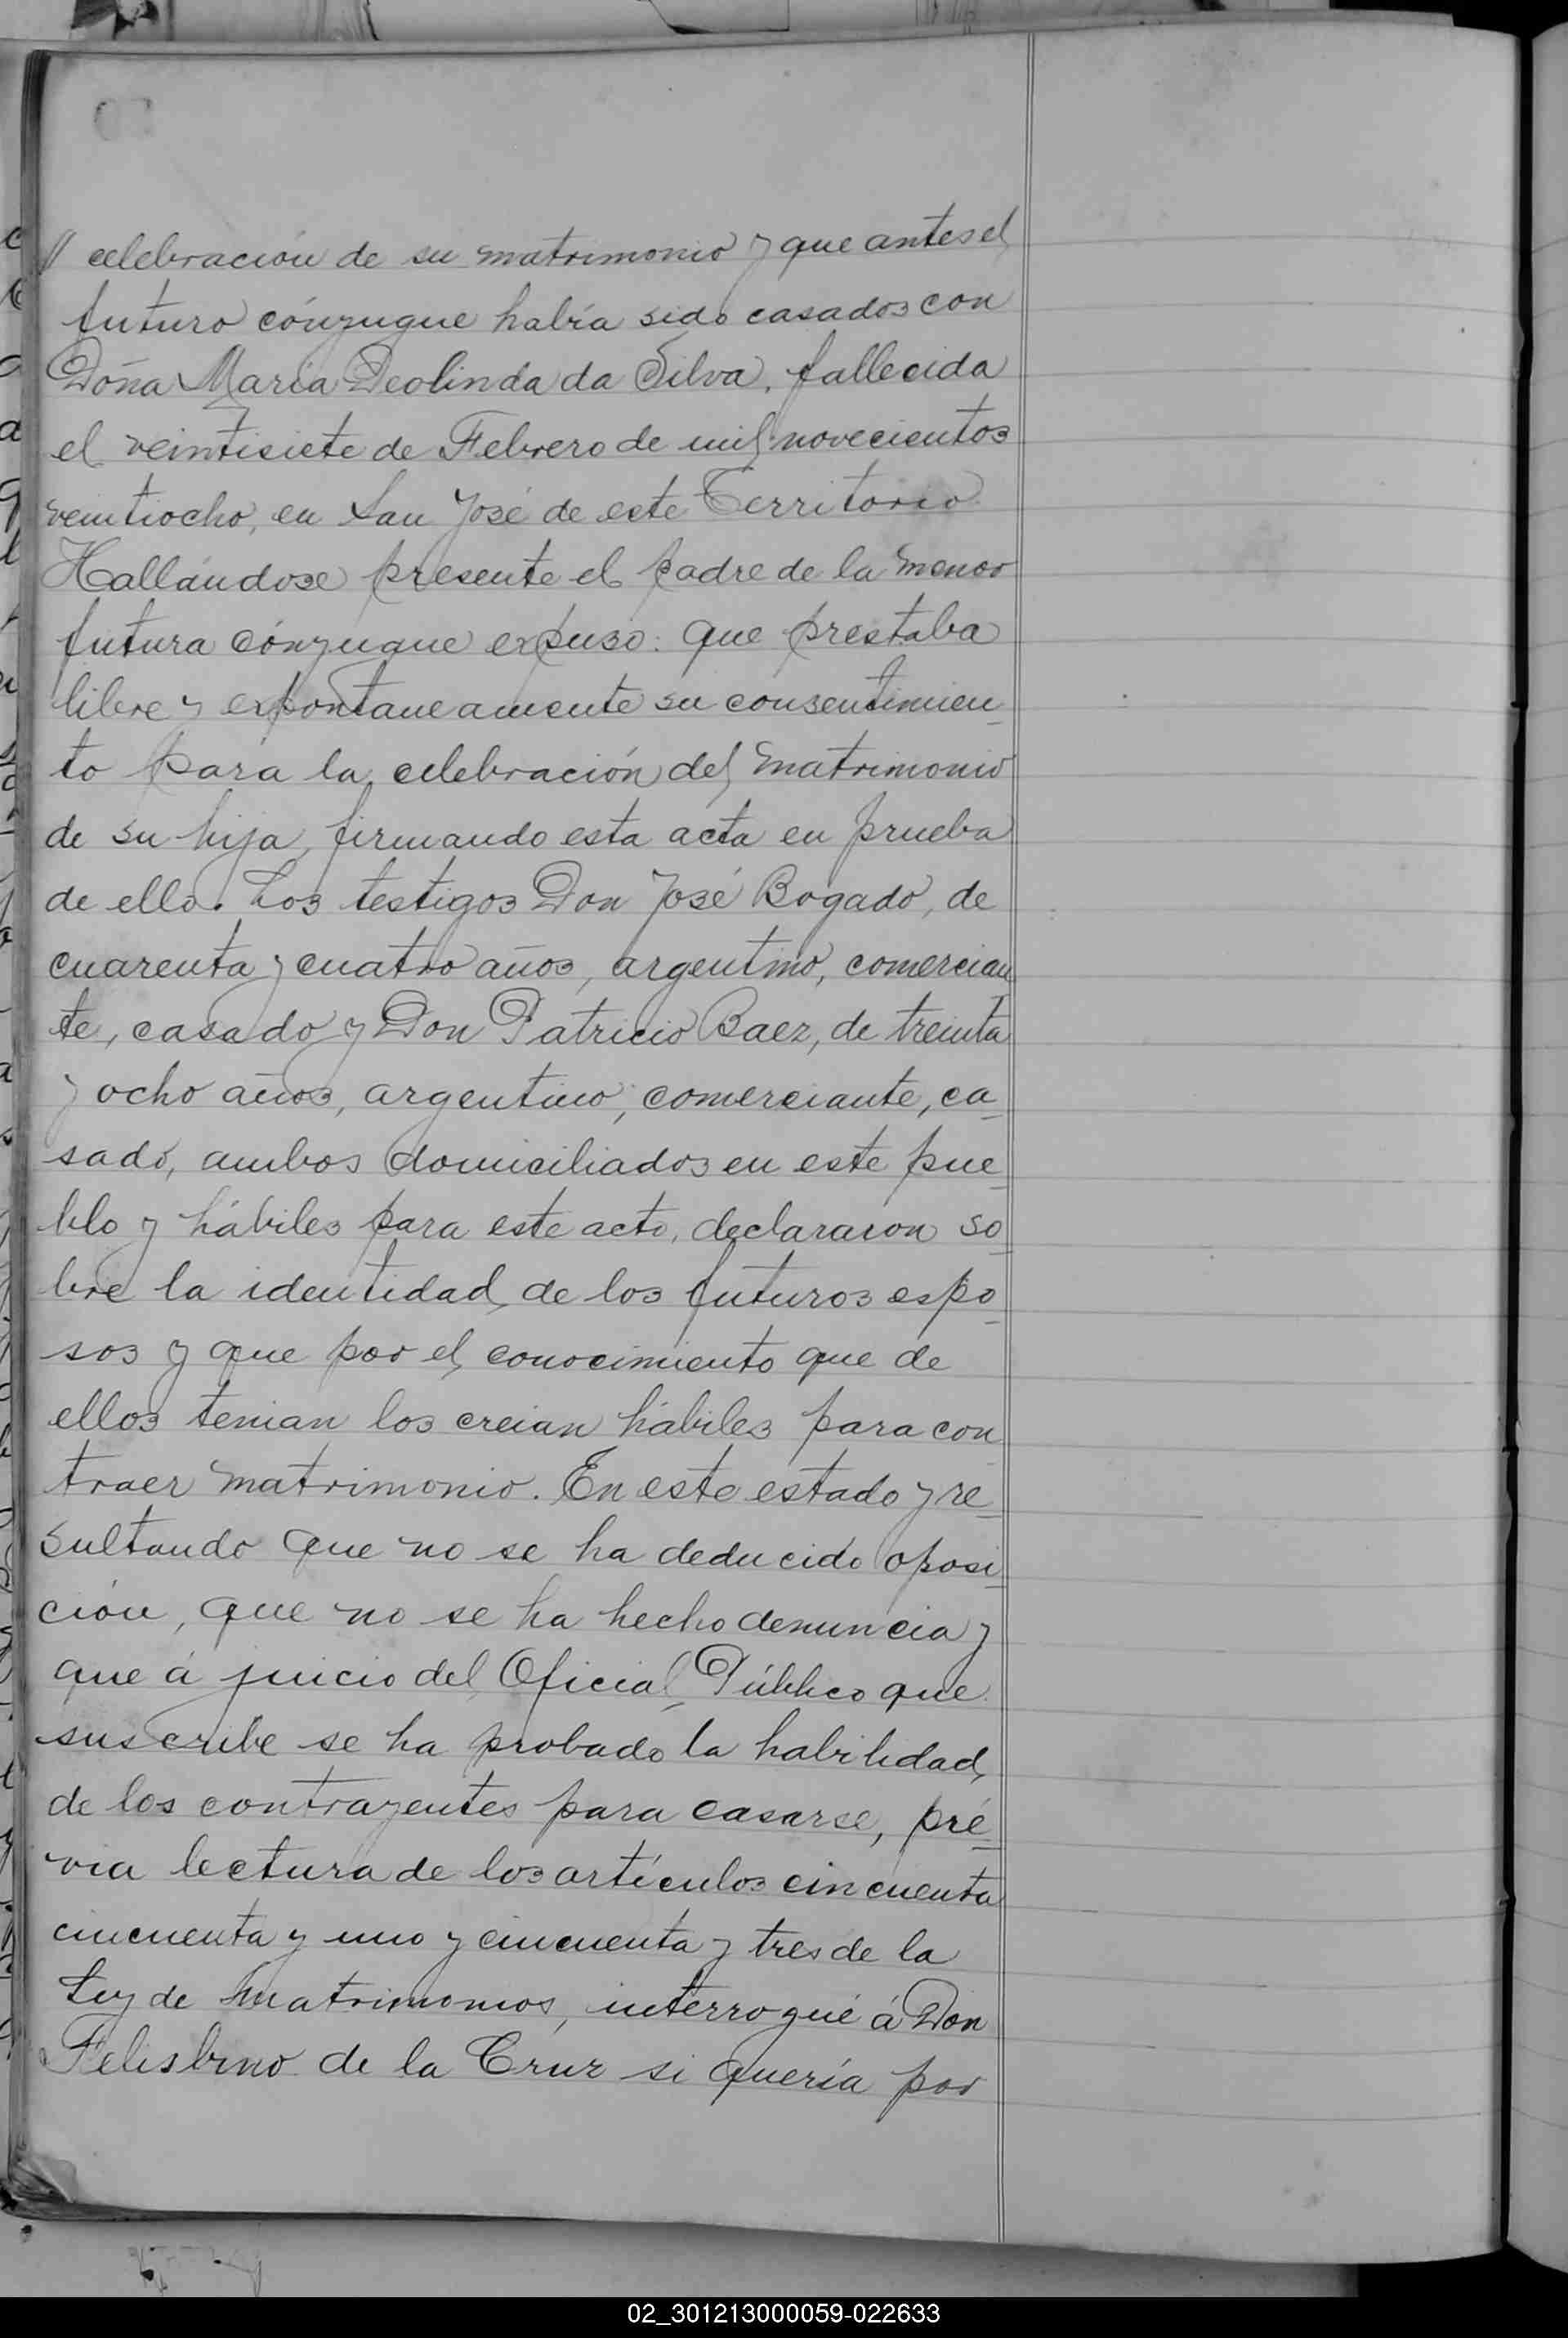 // celebración de su matrimonio y que antes el
futuro cónyugue había sido casados con
Doña María Deolinda da Silva, fallecida
el veintisiete de Febrero de mil novecientos
veintiocho, en San José de este Territorio.
Hallándose presente el padre de la menor
futura cónyugue expuso: que prestaba
libre y expontaneamente su consentimien_
to para la celebración del matrimonio
de su hija, firmando esta acta en prueba
de ello. Los testigos Don José Bogado, de
cuarenta y cuatro años, argentino, comercian
te, casado y Don Patricio Baez, de treinta
y ocho años, argentino, comerciante, ca_
sado, ambos domiciliados en este pue_
blo y hábiles para este acto, declararon so_
bre la identidad de los futuros espo_
sos y que por el conocimiento que de
ellos tenian los creian hábiles para con_
traer matrimonio. En este estado y re_
sultando que no se ha deducido oposi_
ción, que no se ha hecho denuncia y
que á juicio del Oficial Público que
suscribe se ha probado la habilidad
de los contrayentes para casarse, pré_
via lectura de los artículos cincuenta
cincuenta y uno y cincuenta y tres de la
Ley de Matrimonios, interrogué á Don
Felisbino de la Cruz si quería por
02_301213000059-022633